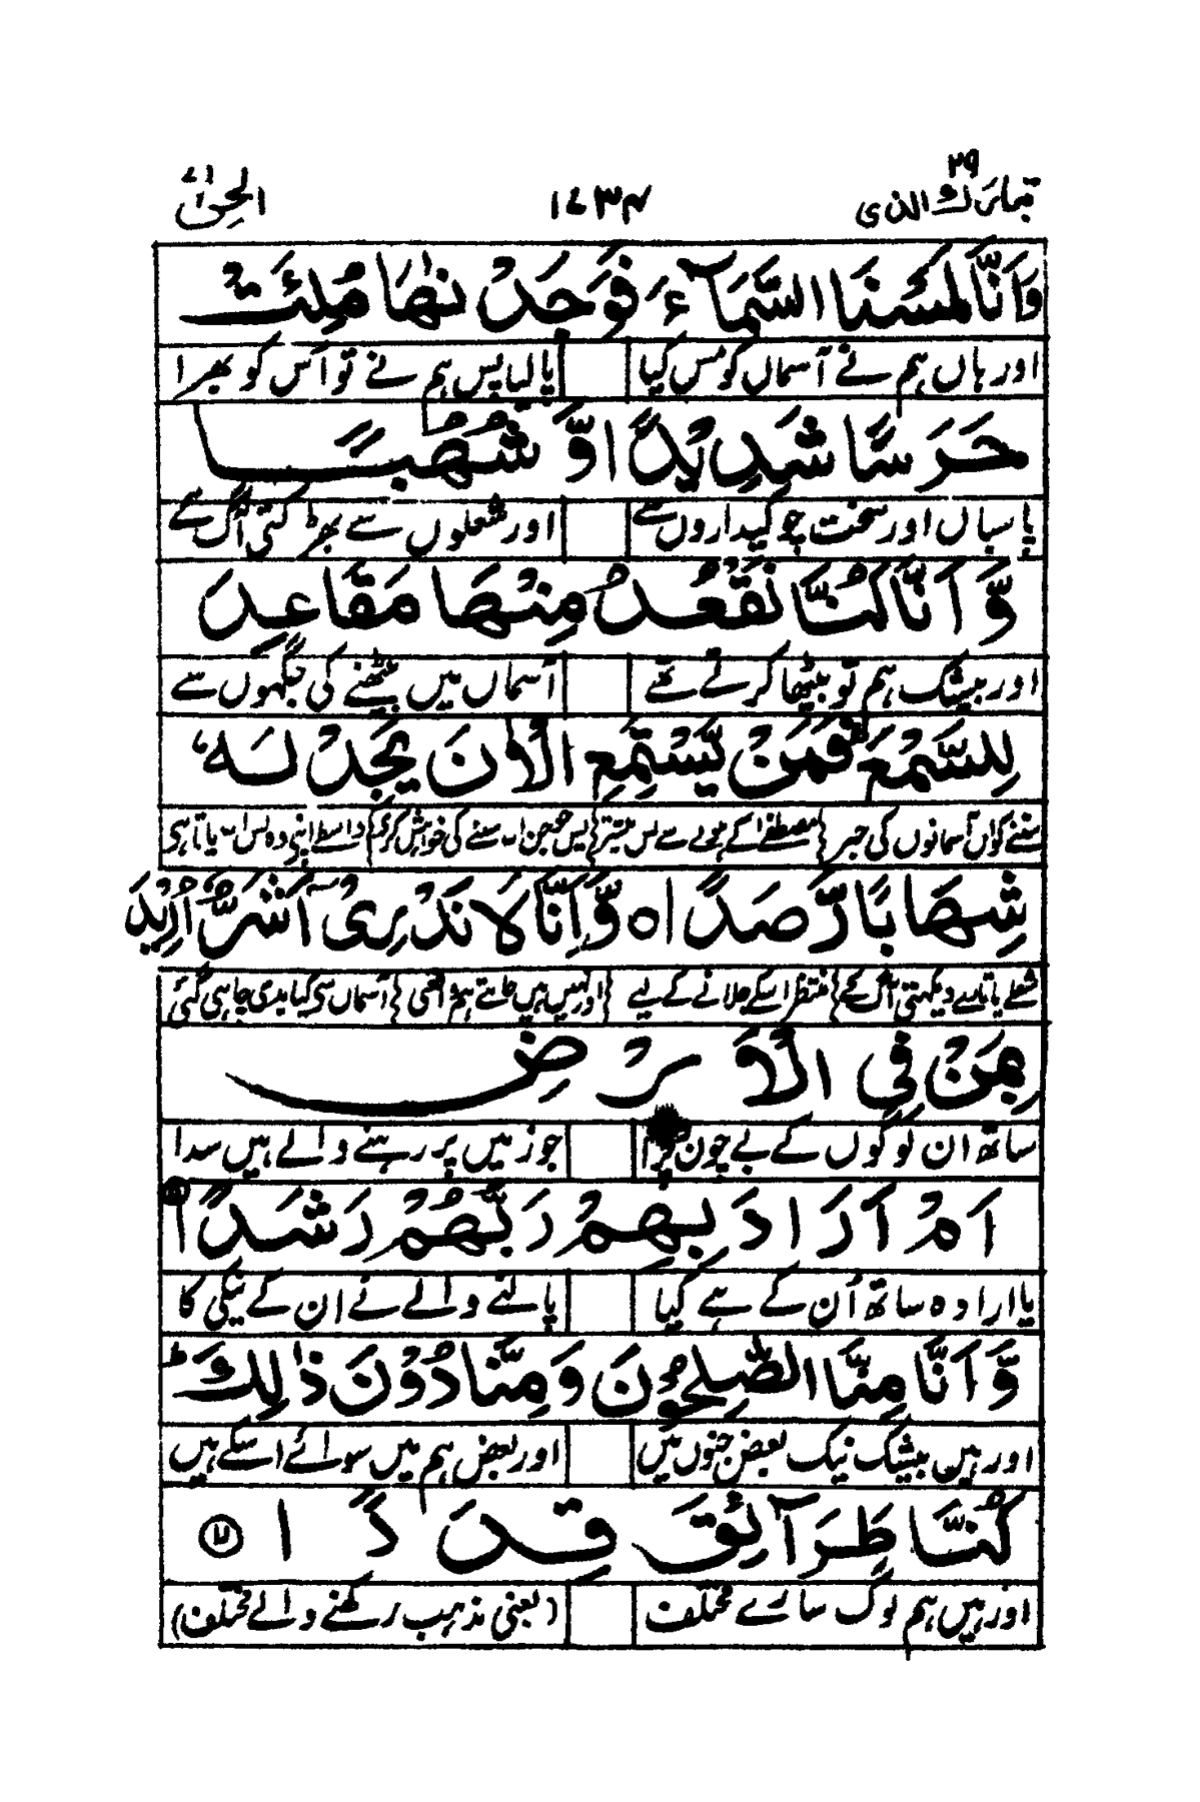 تبارك الذی ۲۹ ۱۷۳۴ الجن ۷۲
وَّاَنَّا لَمَسْنَا السَّمَآءَ فَوَجَدْنٰهَا مُلِئَتْ
اور ہاں ہم نے آسماں کو مس کیا پا لیا پس ہم نے تو اُس کو بھرا
حَرَسًا شَدِيْدًا وَّ شُهُبًا
پاسباں اور سخت چوکیداروں سے اور شعلوں سے بھڑکتی آگ کے
وَّ اَنَّا كُنَّا نَقْعُدُ مِنْهَا مَقَاعِدَ
اور بیشک ہم تو بیٹھا کرتے تھے آسماں میں بیٹھنے کی جگہوں سے
لِلسَّمْعِ ؕ فَمَنْ يَّسْتَمِعِ الْاٰنَ يَجِدْ لَهٗ
سننے کو اں آسمانوں کی خبر مصطفےٰ کے سے بس پیشتر پس جن اب سننے کی خواہش کرے واسطے اپنے وہ بس اب پاتا ہی
شِهَابًا رَّصَدًا ۙ وَّ اَنَّا لَا نَدْرِىْۤ اَشَرٌّ اُرِيْدَ
شعلے یا تارے دہکتی آگ کے منتظر اسکے جلانے کے لیے اور نہیں ہیں جانتے ہم واقعی آسماں سے کیا بدی چاہی گئی
بِمَنْ فِى الْاَرْضِ
ساتھ ان لوگوں کے بے چون جو زمیں پر رہنے والے ہیں سدا
اَمْ اَرَادَ بِهِمْ رَبُّهُمْ رَشَدًا ۙ
یا ارادہ ساتھ اُن کے ہے کیا پالنے والے نے ان کے نیکی کا
وَّ اَنَّا مِنَّا الصّٰلِحُوْنَ وَمِنَّا دُوْنَ ذٰلِكَ ؕ
اور ہیں بیشک نیک بعض جنوں میں اور بعض ہم میں سوائے اسکے ہیں
كُنَّا طَرَآئِقَ قِدَدًا ۙ
اور ہیں ہم لوگ سارے مختلف (یعنی مذہب رکھنے والے مختلف)